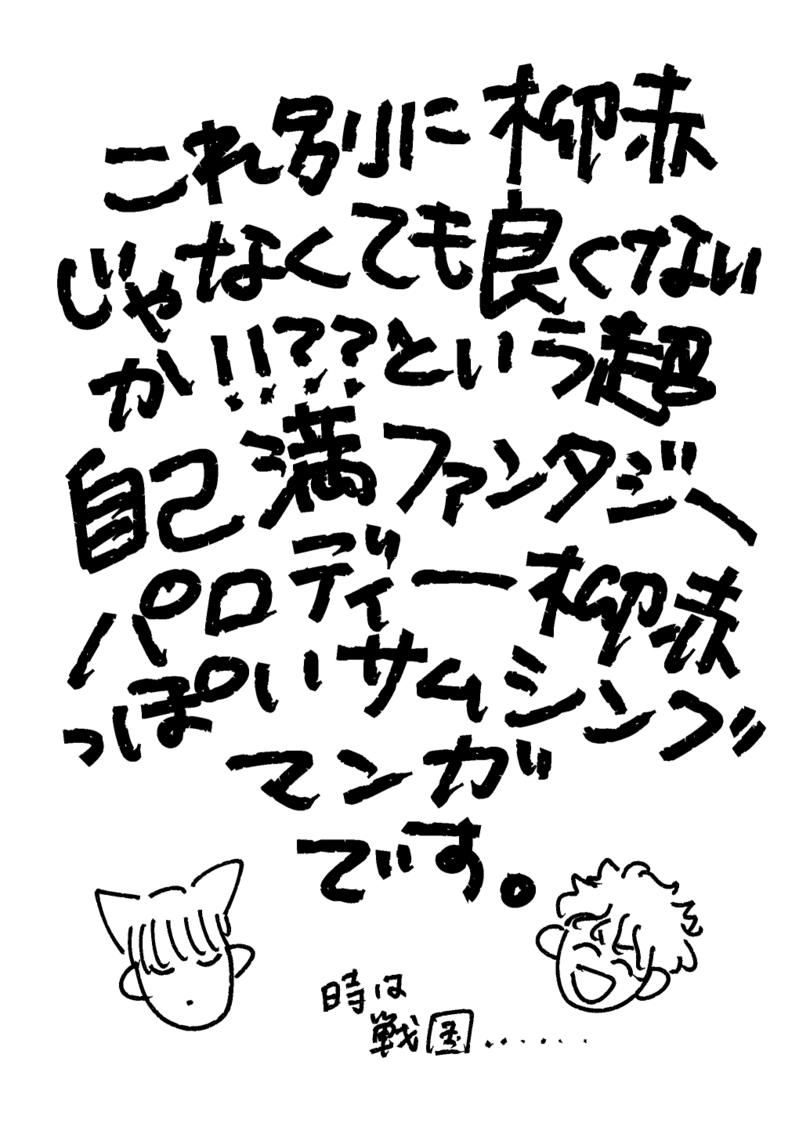 これ別に柳赤
じゃなくても良くない
か!!??という超
自己満ファンタジー
パロディー柳赤
っぽいサムシング
マンガ
です。
時は
戦国......